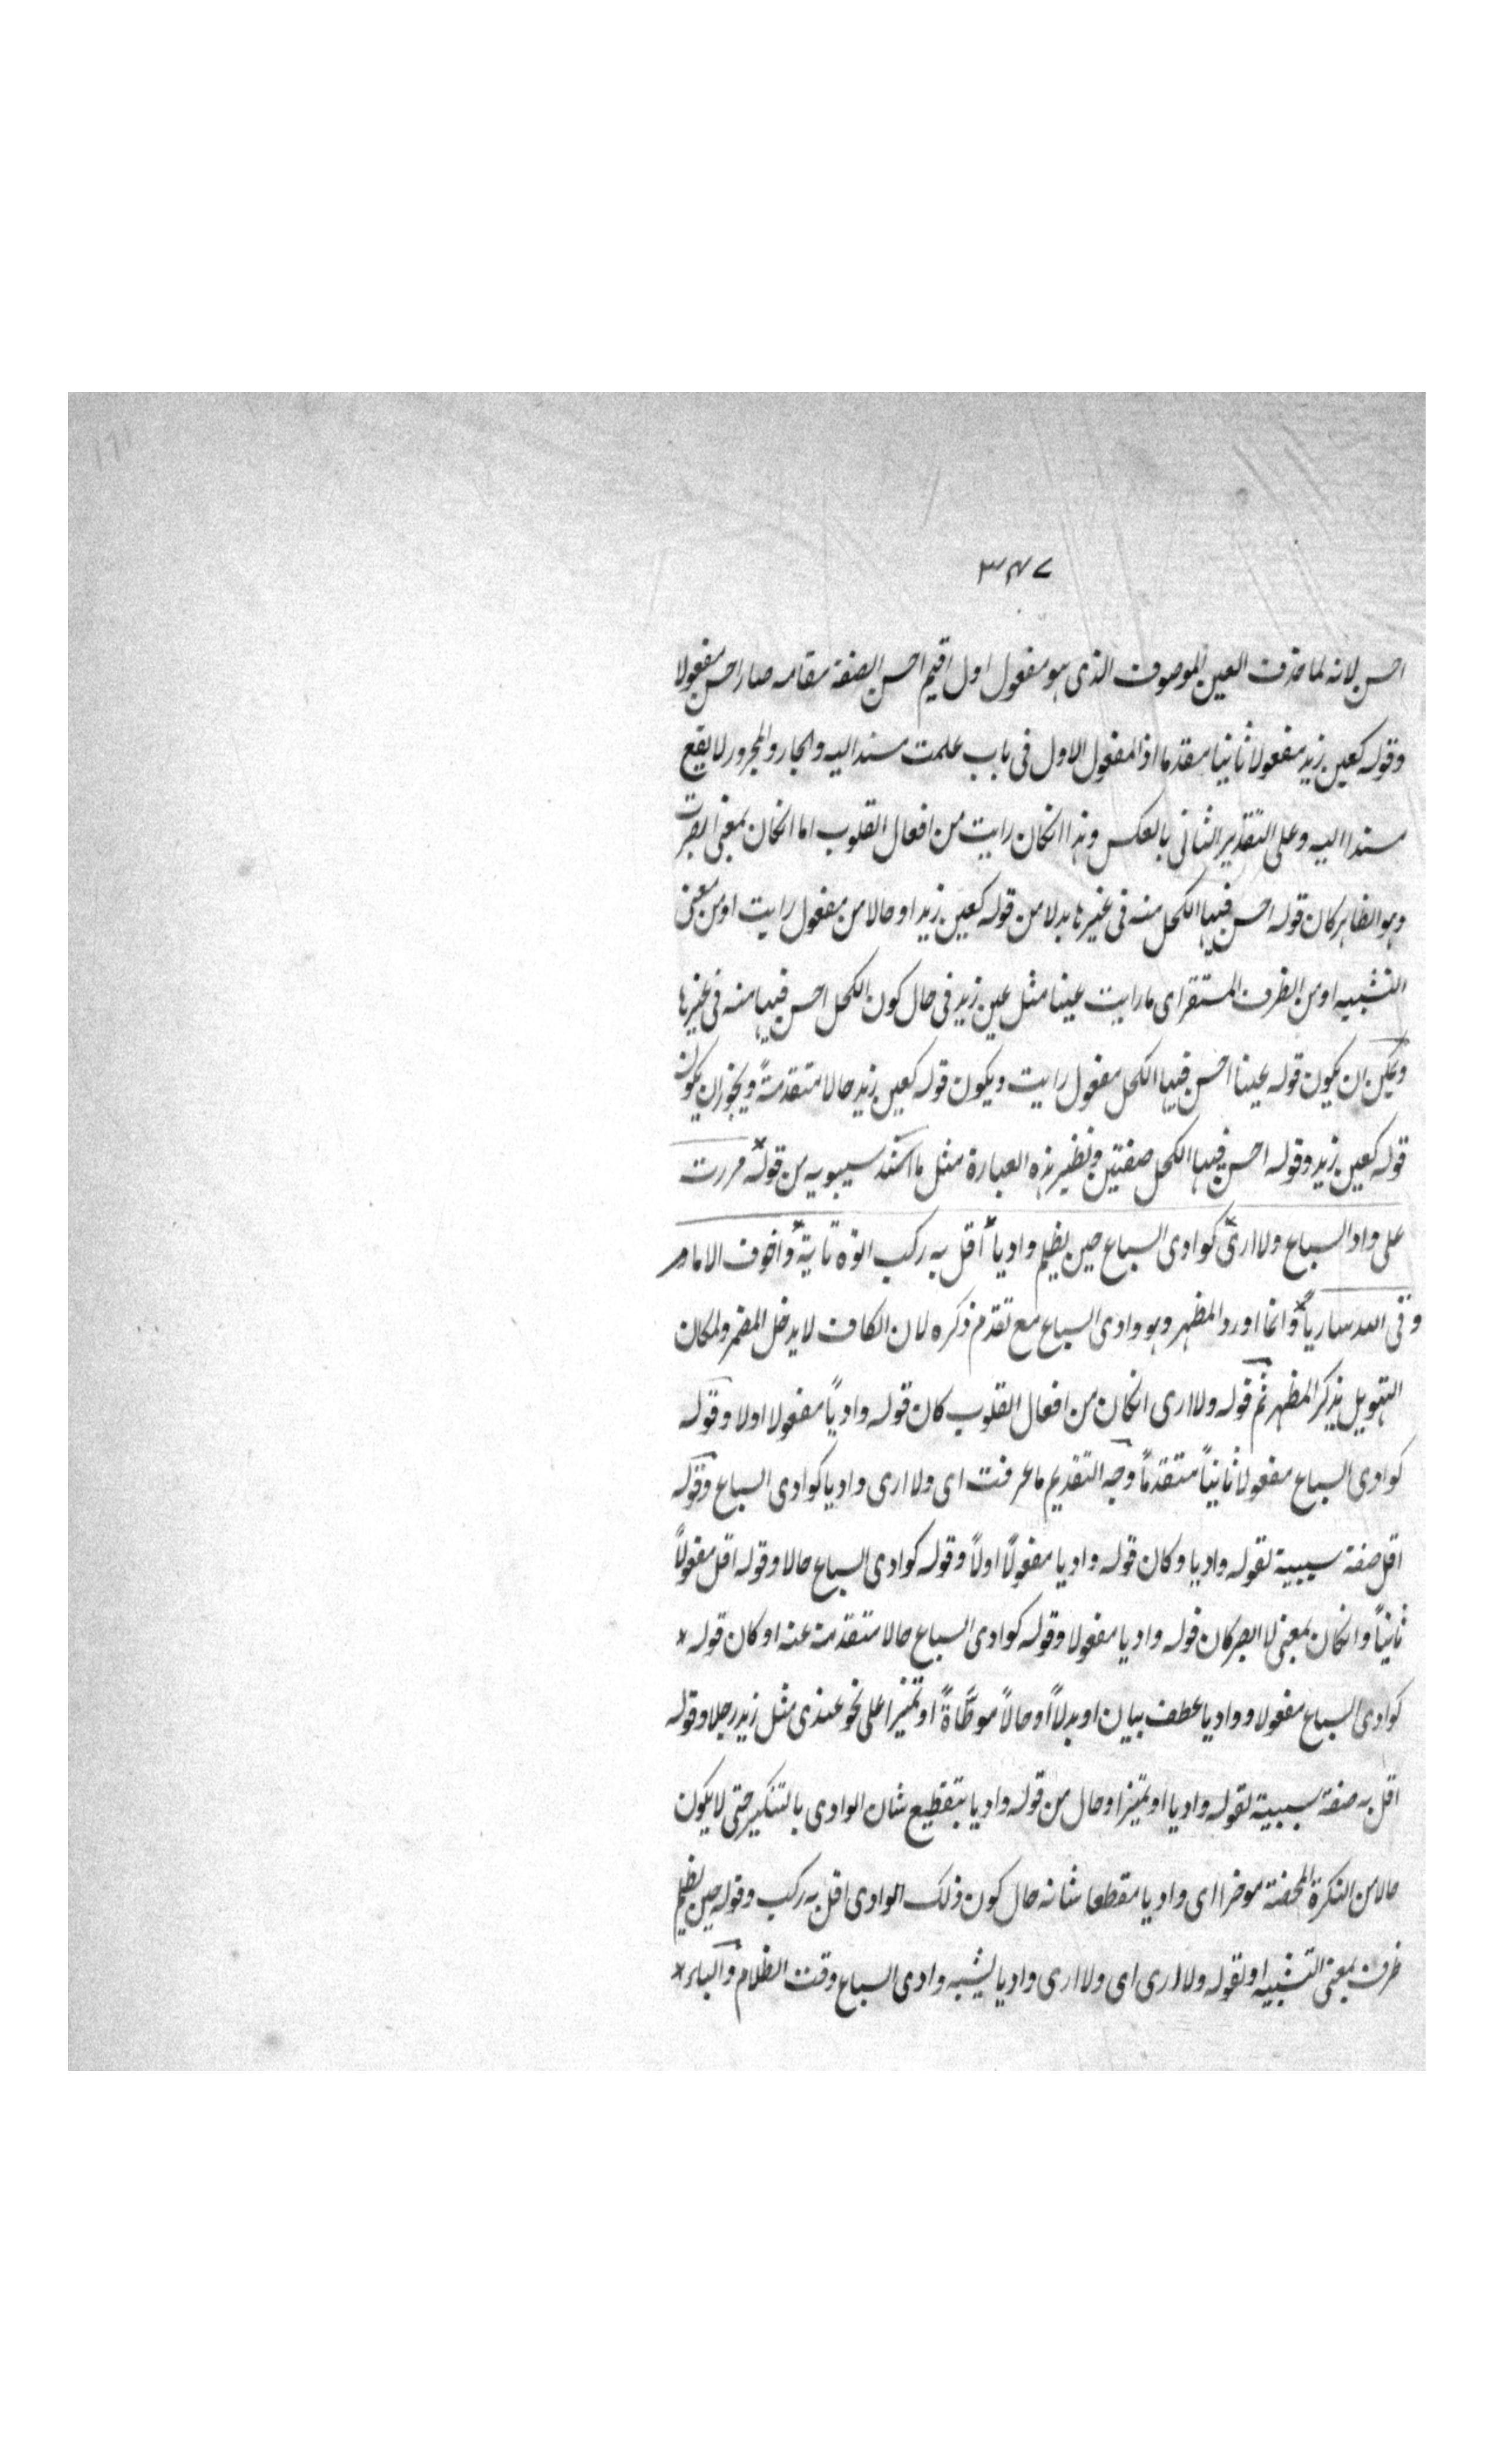 ٣٤٧
احسن لانه لما حذف العين الموصوف الذى هو مفعول اول اقيم احسن الصفة مقامه صار احسن مفعولا
وقوله كعين زيد مفعولا ثانيا مقدما اذ المفعول الاول فى باب علمت مسند اليه والجار والمجرور لا يقع
مسندا اليه وعلى التقدير الثانى بالعكس وهذا انكان رايت من افعال القلوب اما انكان بمعنى ابصرت
وهو الظاهر كان قوله احسن فيها الكحل منه فى غيرها بدلا من قوله كعين زيد او حالا من مفعول رايت او من معنى
التشبيه او من الظرف المستقر اى ما رايت عينا مثل عين زيد فى حال كون الكحل احسن فيها منه فى غيرها
ويمكن ان يكون قوله عينا احسن فيها الكحل مفعول رايت ويكون قوله كعين زيد حالا متقدمةً ويجوز ان يكون
قوله كعين زيد وقوله احسن فيها الكحل صفتين ونظير هذه العبارة مثل ما انشد سيبويه من قوله مررت
على واد السباع ولا ارى كوادى السباع حين يظلم واديا اقل به ركب اتوه تاية واخوف الا ما
وقى الله ساريا وانما اورد المظهر وهو وادى السباع مع تقدم ذكره لان الكاف لا يدخل المضمر ولمكان
التهويل بذكر المظهر ثم قوله ولا ارى انكان من افعال القلوب كان قوله وادياً مفعولا اولا وقوله
كوادى السباع مفعولا ثانياً متقدماً وجه التقديم ما عرفت اى ولا ارى واديا كوادى السباع وقوله
اقل صفة سببية لقوله واديا وكان قوله واديا مفعولاً اولاً وقوله كوادى السباع حالا وقوله اقل مفعولاً
ثانياً وانكان بمعنى لا ابصر كان قوله واديا مفعولا وقوله كوادى السباع حالا متقدمة عنه او كان قوله
كوادى السباع مفعولا وواديا عطف بيان او بدلاً او حالاً موطّأةً او تميزا على نحو عندى مثل زيد رجلا وقوله
اقل به صفة سببية لقوله واديا او تميزا وحال من قوله واديا بتفظيع شان الوادى بالتنكير حتى لا يكون
حالا من النكرة المحضة موخرا اى واديا مقطعا شانه حال كون ذلك الوادى اقل به ركب وقوله حين يظلم
ظرف بمعنى التشبيه او لقوله ولا ارى اى ولا ارى واديا يشبه وادى السباع وقت الظلام والباء